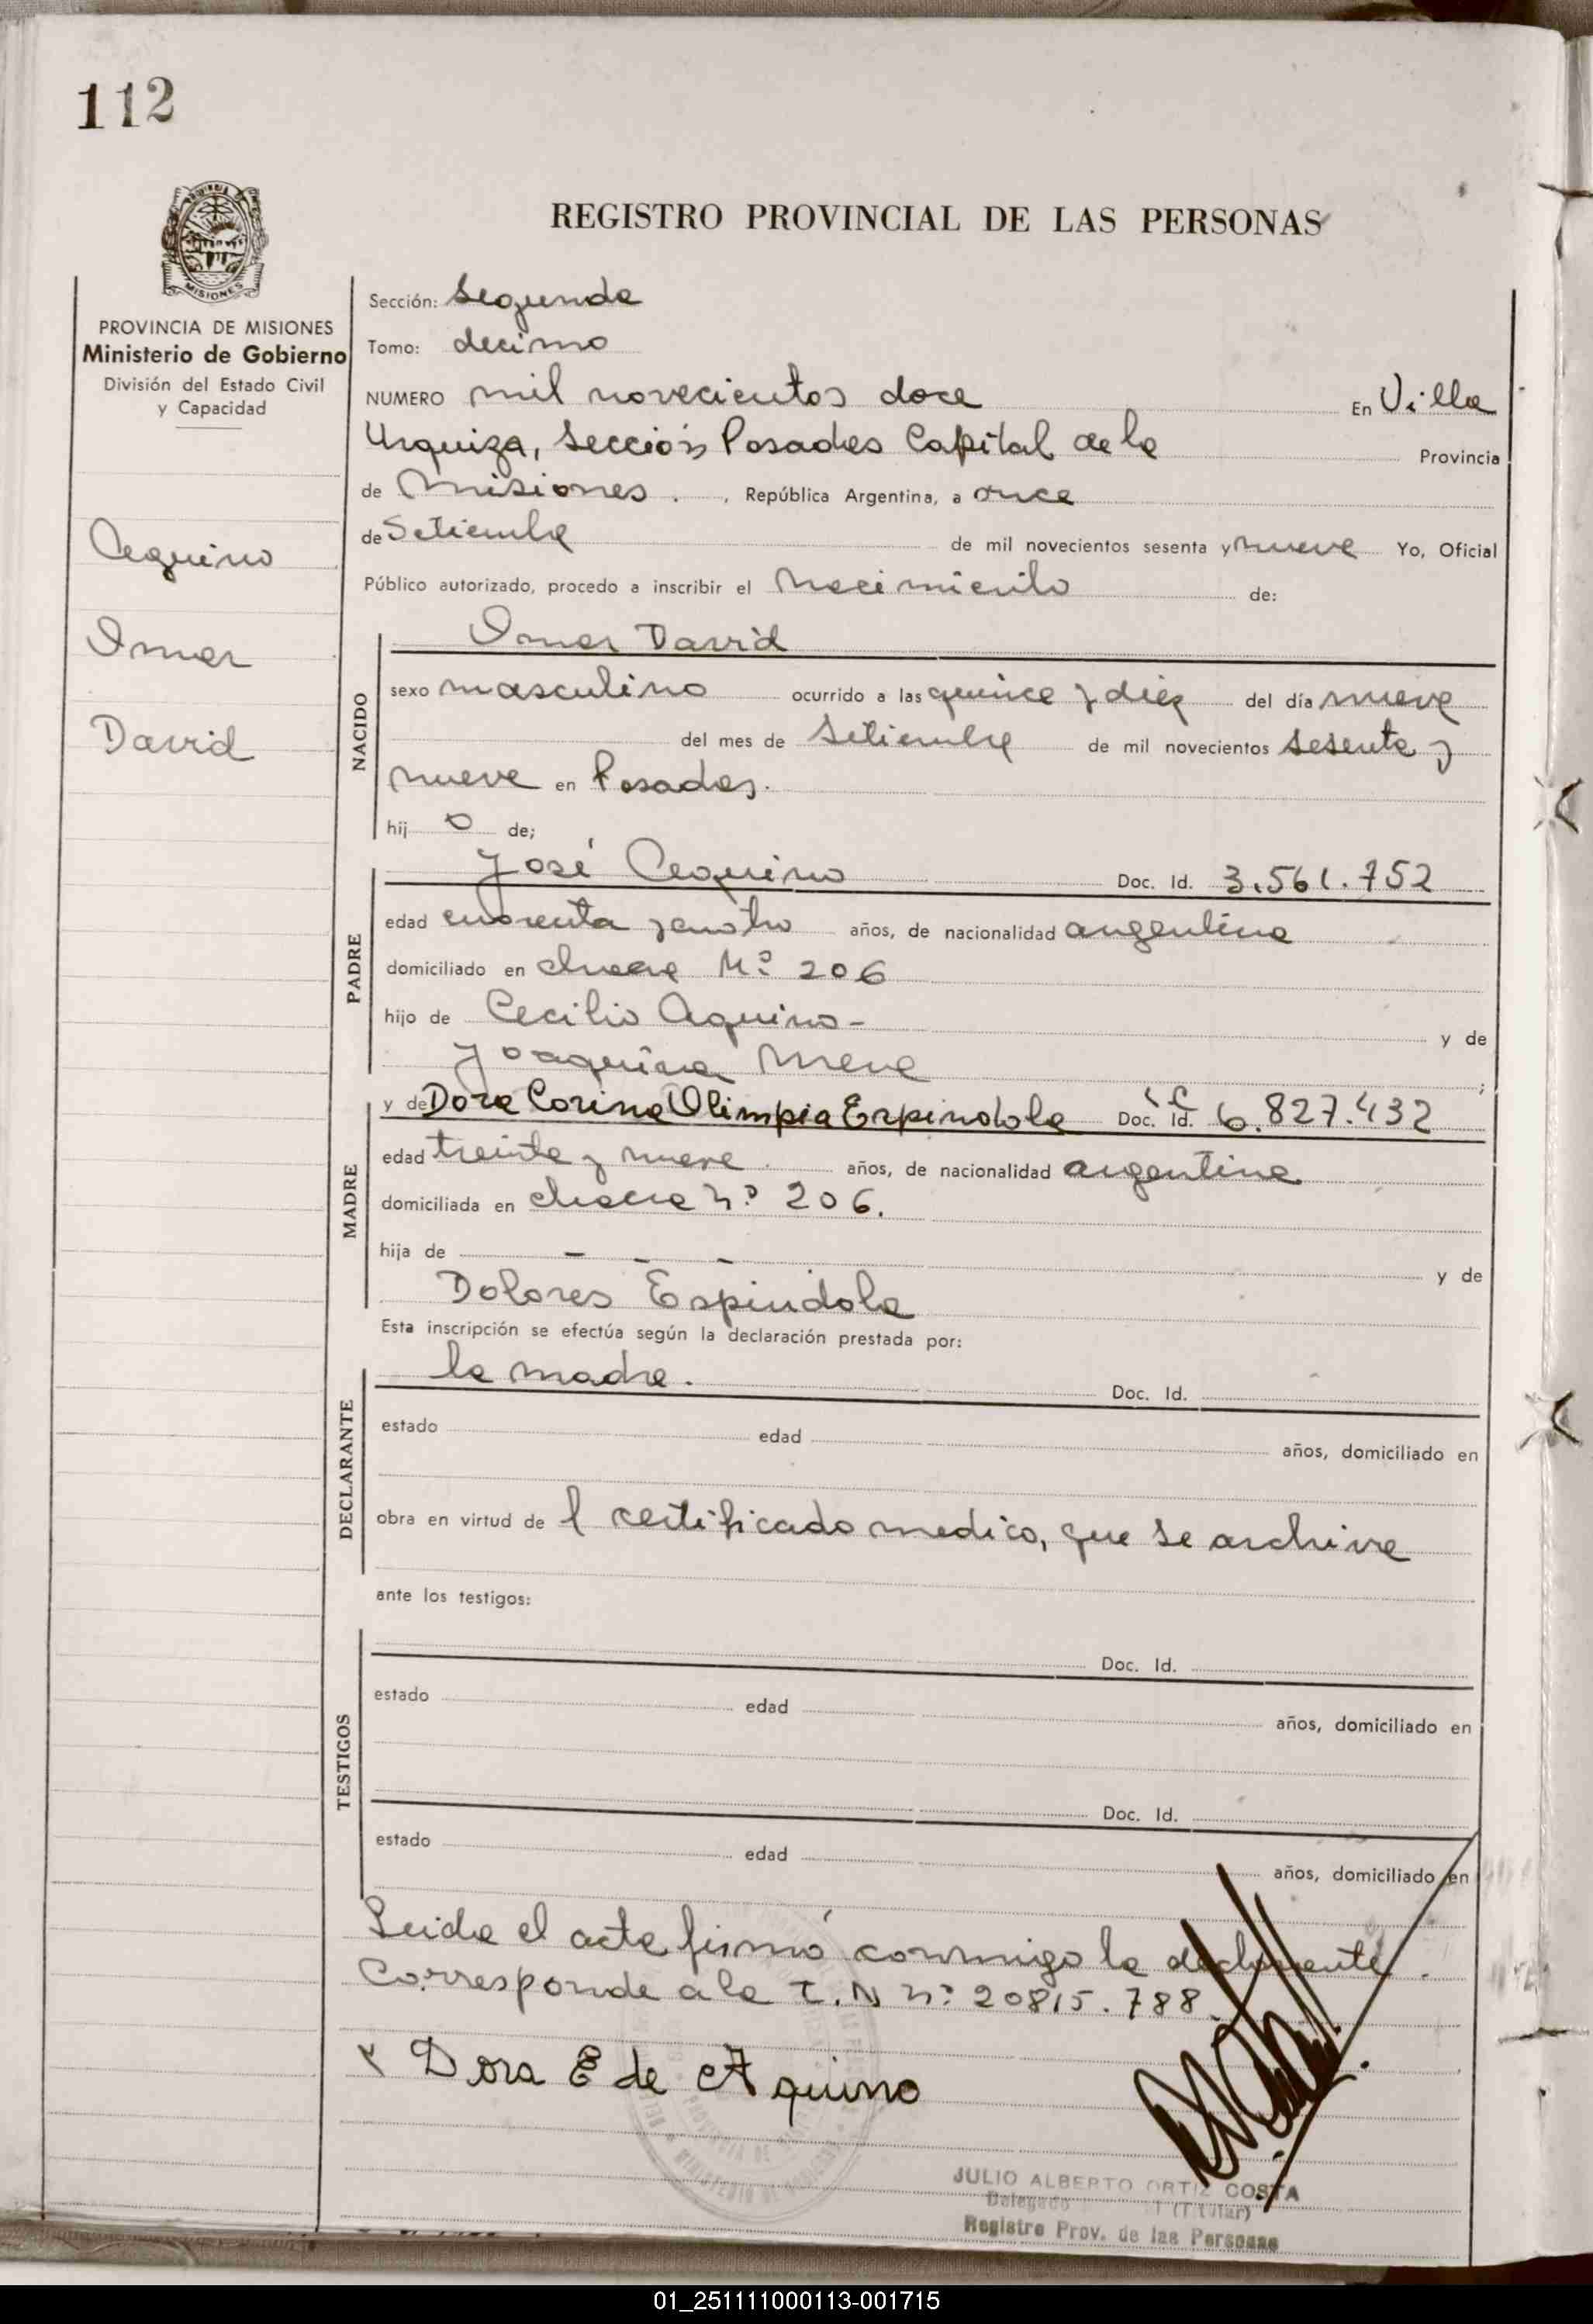 112
MISIONES
PROVINCIA DE MISIONES
Ministerio de Gobierno
División del Estado Civil
y Capacidad
Aquino
Omar
David
REGISTRO PROVINCIAL DE LAS PERSONAS
Sección: Segunda
Tomo: decimo
NUMERO mil novecientos doce En Villa
Urquiza, Sección Posadas Capital de la Provincia
de Misiones. , República Argentina, a once
de Setiembre de mil novecientos sesenta y nueve Yo, Oficial
Público autorizado, procedo a inscribir el Nacimiento de:
Omar David
NACIDO
sexo masculino ocurrido a las quince y diez del día nueve
del mes de Setiembre de mil novecientos sesenta y
nueve en Posadas.
hij o de;
José Aquino Doc. Id. 3.561.752
PADRE
edad cuarenta y cuatro años, de nacionalidad argentina
domiciliado en chacra Nº 206
hijo de Cecilio Aquino - y de
Joaquina ;
y de Dora Corina Olimpia Espindola Doc. Id. LC 6.827.432
MADRE
edad treinta y nueve. años, de nacionalidad argentina
domiciliada en chacra nº 206.
hija de - - - y de
Dolores Espindola
Esta inscripción se efectúa según la declaración prestada por:
la madre. Doc. Id.
DECLARANTE
estado edad años, domiciliado en
obra en virtud de l certificado medico, que se archiva
ante los testigos:
Doc. Id.
TESTIGOS
estado edad años, domiciliado en
Doc. Id.
estado edad años, domiciliado en
Leida el acta firmó conmigo la declarante.
Corresponde a la L.N nº 20815.788.
x Dora E de Aquino
JULIO ALBERTO ORTIZ COSTA
Delegado (Titular)
Registro Prov. de las Personas
01_251111000113-001715